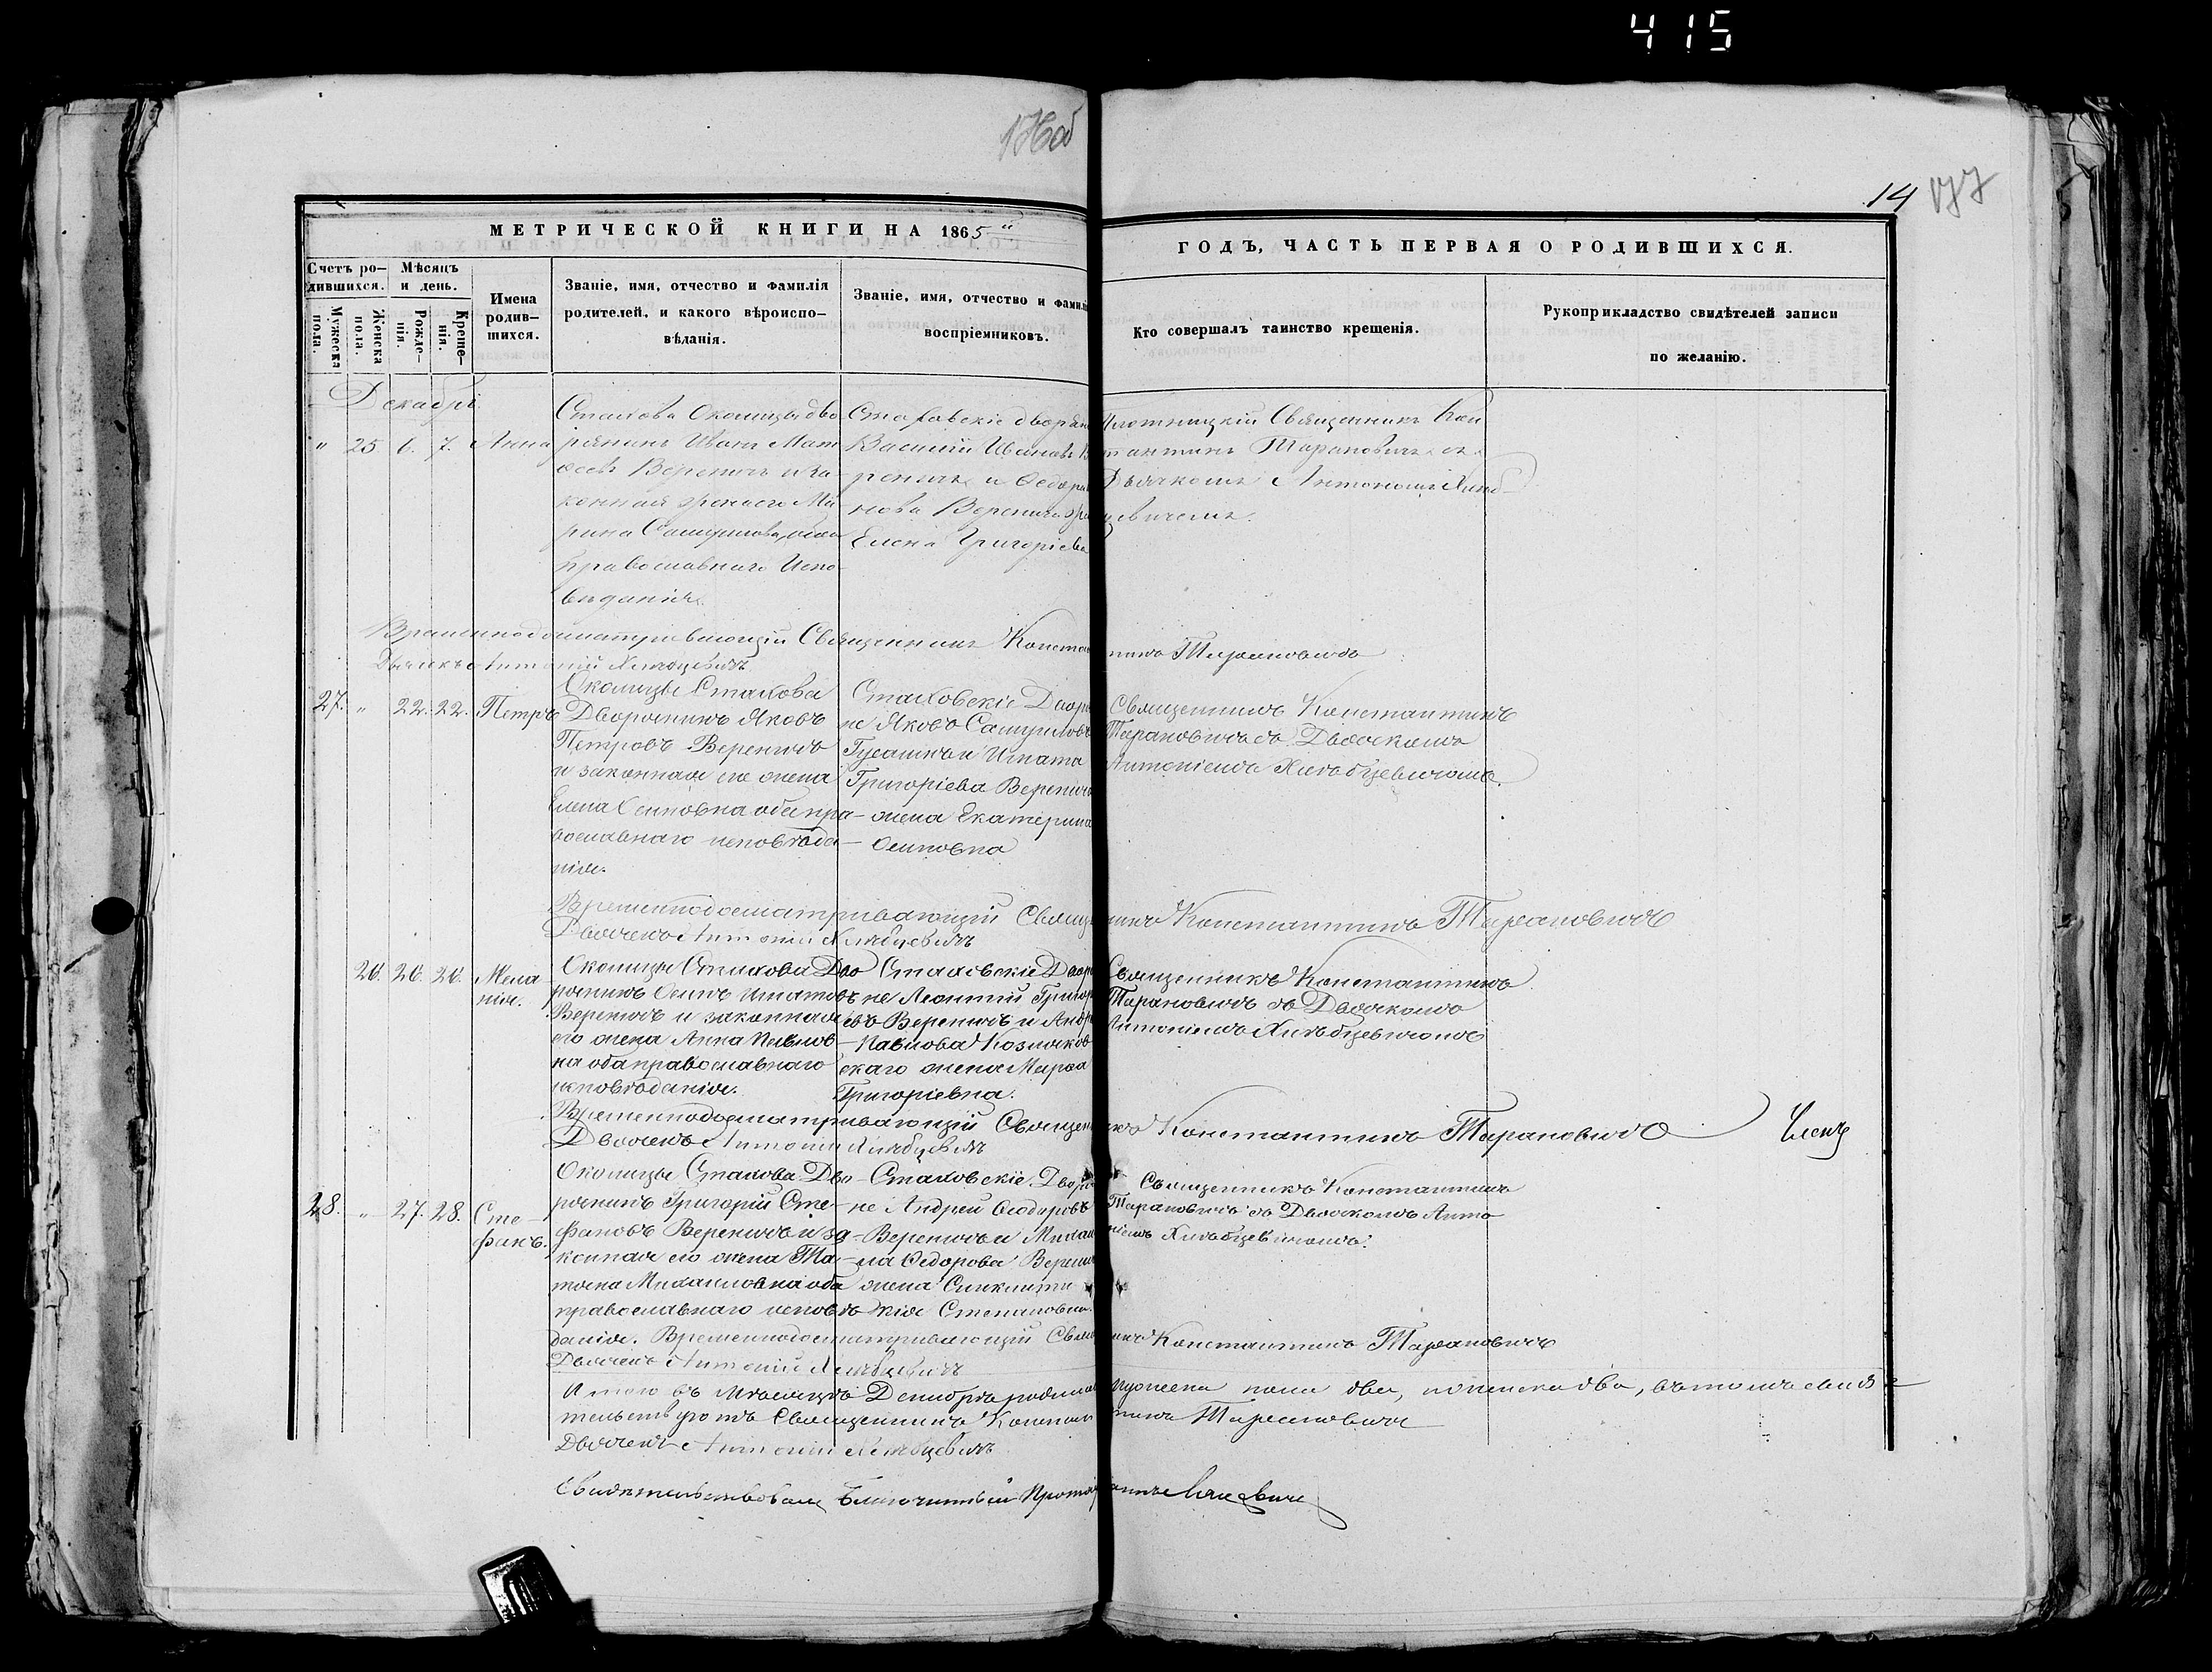 415
14 177
МЕТРИЧЕСКОЙ КНИГИ НА 1865 ГОДЪ, ЧАСТЬ ПЕРВАЯ О РОДИВШИХСЯ.
Счетъ ро-
дившихся.
Мужеска
пола.
Женска
пола.
Мѣсяцъ
и день.
Рожде-
нія.
Креще-
нія.
Имена
родив-
шихся.
Званіе, имя, отчество и фамилія
родителей, и какого вѣроиспо-
вѣданія.
Званіе, имя, отчество и фамилі
воспріемниковъ.
Кто совершалъ таинство крещенія.
Рукоприкладство свидѣтелей записи
по желанію.
Декабрь
" 25 6. 7. Анна
Стахова Околицы дво
рянинъ Иванъ Мат
веевъ Вереничъ и за
конная жена его Ма
рина Самуилова, оба
православнаго Испо-
веданія.
Стаховскіе дворян
Василій Ивановъ В
реничъ и Ѳедора
нова Веренича
Елена Григоріева
Плотницкій Священникъ Кон
тантинъ Тарановичъ съ
Дьячкомъ Антоніемъ Хлѣб-
цевичемъ.
Временнодосматривающій Священникъ Константинъ Тарановичъ
Дьячекъ Антоній Хлѣбцевичъ
27. " 22. 22. Петръ
Околицы Стахова
Дворянинъ Яковъ
Петровъ Вереничъ
и законная его жена
Елена Осиповна оба пра-
вославнаго исповѣда-
нія.
Стаховскіе Дворя
не Яковъ Самуиловъ
и Игната
Григоріева Веренич
жена Екатерина
Осиповна
Священникъ Константинъ
Тарановичъ съ Дьячкомъ
Антоніемъ Хлѣбцевичомъ.
Временнодосматривающій Священникъ Константинъ Тарановичъ
Дьячекъ Антоній Хлѣбцевичъ
26. 26. 26. Мела
нія.
Околицы Стахова Дво
рянинъ Осипъ Игнатовъ
Вереничъ и законная
его жена Анна Павлов-
на оба православнаго
исповѣданія.
Стаховскіе Дворя
не Леонтій Григор
евъ Вереничъ и Андр
Павлова Козляков
скаго жена Марѳа
Григоріевна.
Священникъ Константинъ
Тарановичъ съ Дьячкомъ
Антоніемъ Хлѣбцевичомъ
Временнодосматривающій Священникъ Константинъ Тарановичъ
Дьячекъ Антоній Хлѣбцевичъ
28. " 27. 28. Сте-
фанъ.
Околицы Стахова Дво-
рянинъ Григорій Сте-
фановъ Вереничъ и за-
конная его жена Та-
тяна Михаиловна оба
православнаго исповѣ-
данія.
Стаховскіе Дворя
не Андрей Ѳедоровъ
Вереничъ и Михаи
ла Ѳедорова Веренич
жена
Степановна.
Священникъ Константинъ
Тарановичъ съ Дьячкомъ Анто
ніемъ Хлѣбцевичомъ.
Временнодосматривающій Священникъ Константинъ Тарановичъ
Дьячекъ Антоній Хлѣбцевичъ
Итого въ Мѣсяцѣ Декабрѣ мужеска пола два, женска два, въ томъ свидѣ-
тельствуютъ Священникъ Константинъ Тарановичъ
Дьячекъ Антоній Хлѣбцевичъ
Свидѣтельствовалъ Благочинный